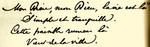 Mon Dieu, mon Dieu, la vie est là
Simple et tranquille.
Cette paisible rumeur là
Vient de la ville.